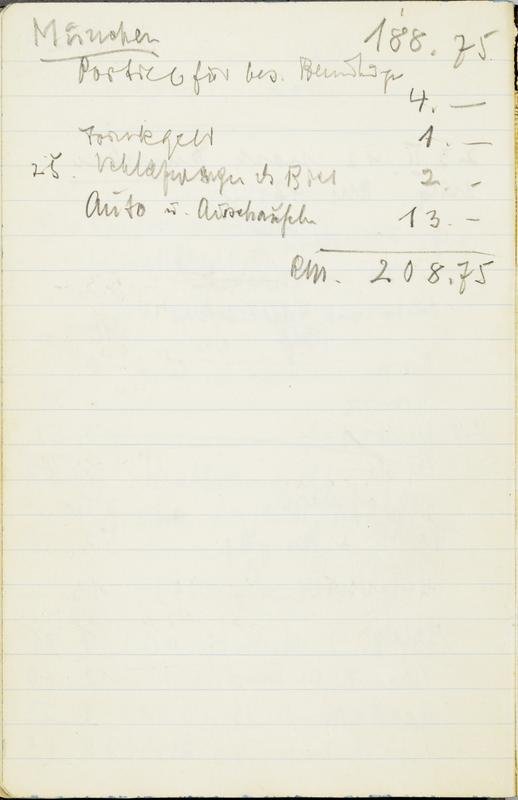 München 188.75
Portier für bes. Bemühungen
4.—
Trinkgeld 1.—
25. Schlafwagen 2.-
Auto u. Ausschaufeln 13.-
RM. 208.75